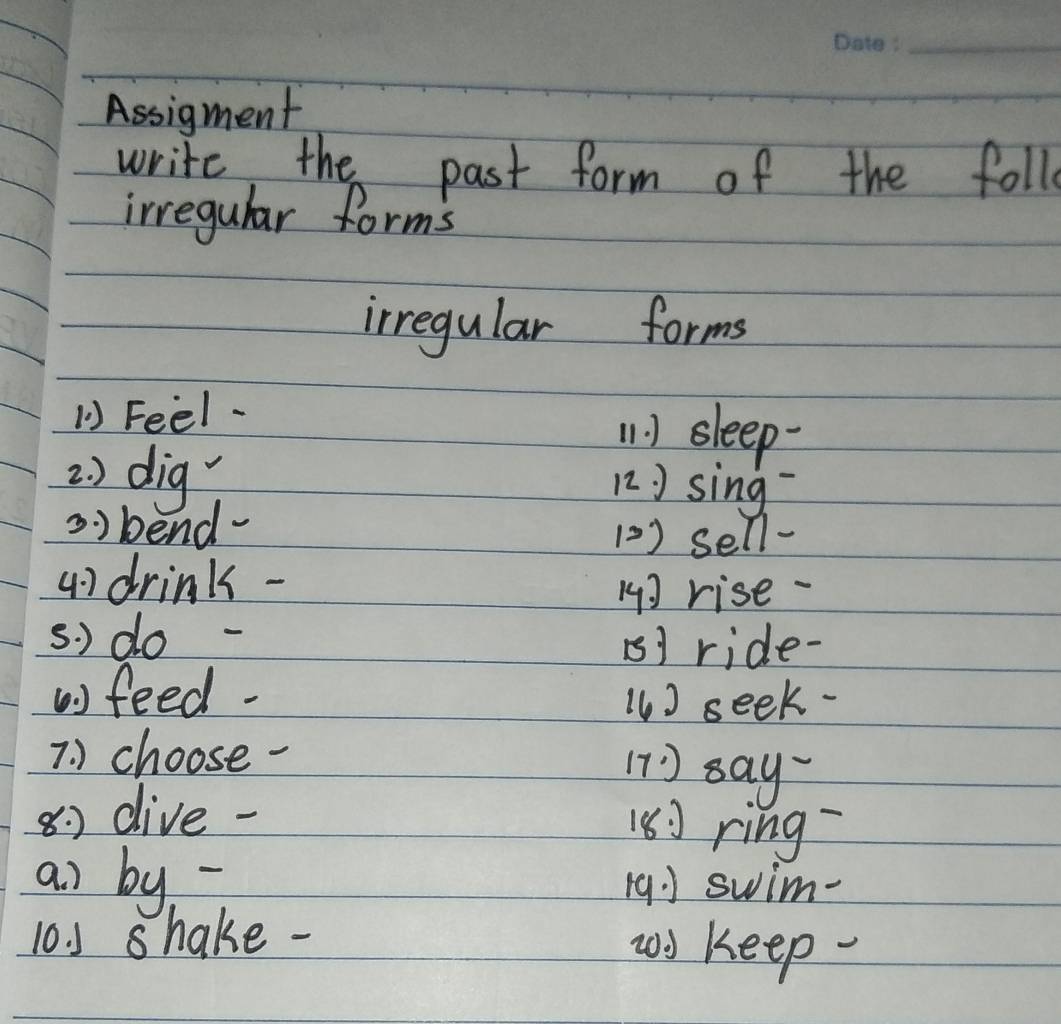 Date :
Assigment
write the past form of the
irregular forms
irregular forms
1.) Feel -
2.) dig -
3.) bend -
4.) drink -
5.) do -
6.) feed -
7.) choose -
8.) dive -
9.) by -
10.) shake -
11.) sleep -
12.) sing -
13.) sell -
14.) rise -
15.) ride -
16.) seek -
17.) say -
18.) ring -
19.) swim -
20.) keep -